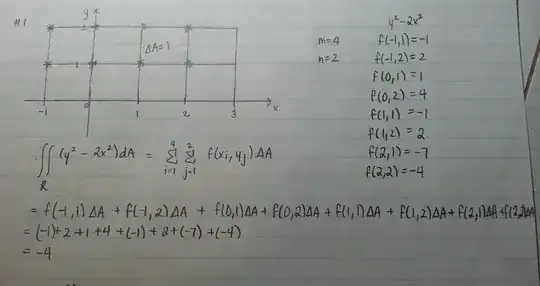 #1
y
2
ΔA=1
1
-1 0 1 2 3 x
m=4
n=2
y²-2x²
f(-1,1)=-1
f(-1,2)=2
f(0,1)=1
f(0,2)=4
f(1,1)=-1
f(1,2)=2
f(2,1)=-7
f(2,2)=-4
∬_R (y²-2x²)dA = Σ_{i=1}^{4} Σ_{j=1}^{2} f(xi,yj)ΔA
= f(-1,1)ΔA + f(-1,2)ΔA + f(0,1)ΔA + f(0,2)ΔA + f(1,1)ΔA + f(1,2)ΔA + f(2,1)ΔA + f(2,2)ΔA
= (-1)+2+1+4+(-1)+2+(-7)+(-4)
= -4